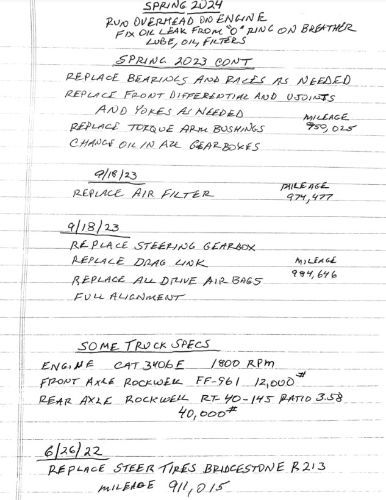 SPRING 2024
RUN OVERHEAD ON ENGINE
FIX OIL LEAK FROM "O" RING ON BREATHER
LUBE, OIL, FILTERS
SPRING 2023 CONT
REPLACE BEARINGS AND RACES AS NEEDED
REPLACE FRONT DIFFERENTIAL AND UJOINTS
AND YOKES AS NEEDED
MILEAGE
REPLACE TORQUE ARM BUSHINGS 959,025
CHANGE OIL IN ALL GEARBOXES
9/18/23
MILEAGE
REPLACE AIR FILTER 974,477
9/18/23
REPLACE STEERING GEARBOX
REPLACE DRAG LINK MILEAGE
REPLACE ALL DRIVE AIR BAGS 984,646
FULL ALIGNMENT
SOME TRUCK SPECS
ENGINE CAT 3406E 1800 RPM
FRONT AXLE ROCKWELL FF-961 12,000#
REAR AXLE ROCKWELL RT-40-145 RATIO 3.58
40,000#
6/26/22
REPLACE STEER TIRES BRIDGESTONE R213
MILEAGE 911,015